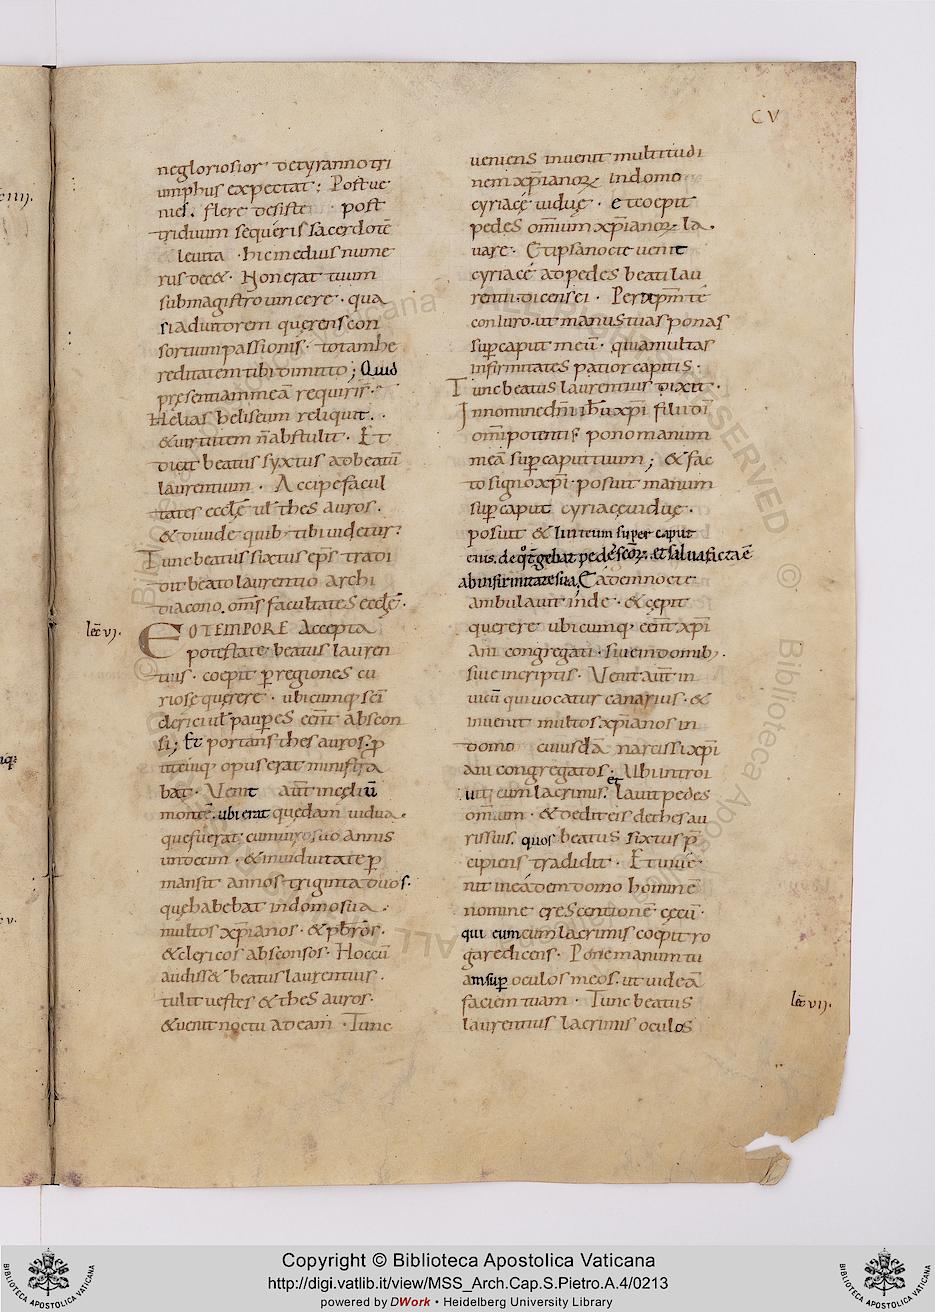 CV
ne gloriosior de tyranno tri
umphus expectat : Post ue
nies. flere desiste post
triduum sequeris sacerdotē
leuita · hic medius nume
rus decet. Non erat tuum
sub magistro uincere · qua
si adiutorem querens con
sortium passionis · totam he
reditatem tibi dimitto ; Quid
presentiam meā requiris ·
Helias heliseum reliquit.
& uirtutem n̄ abstulit · Et
dicit beatus syxtus ad beatū
laurentium · Accipe facul
tates eccle ul thesauros.
& diuide quib; tibi uidetur.
Tunc beatus sixtus ep̄s tradi
dit beato laurentio archi
diacono. om̄s facultates eccle.
lec̄ vj.
EO TEMPORE Accepta
potestate beatus lauren
tius · coepit p regiones cu
riose querere · ubicumq; sc̄i
clerici ul pauperes eēnt abscon
si; Et portans thesauros. p
ut eniq; opus erat ministra
bat · Uenit aut̄ in celiū
montē. ubi erat quedam uidua.
que fuerat cum uiro suo annis
undecim · & in uiduitate p
mansit annos triginta duos.
que habebat in domo sua
multos xp̄ianos · & pb̄ros.
& clericos absconsos · Hoc cū
audiss& beatus laurentius.
tulit uestes & thesauros.
& uenit noctu ad eam · Tunc
ueniens inuenit multitudi
nem xp̄ianoꝝ in domo
cyriace uidue · et coepit
pedes om̄ium xp̄ianoꝝ la
uare · Et ipsa nocte uenit
cyriace ad pedes beati lau
rentii. dicens ei · Per xp̄m te
coniuro. ut manus tuas ponas
sup caput meū · quia multas
infirmitates patior capitis ·
Tunc beatus laurentius dixit ·
In nomine dn̄i ih̄u xp̄i filii dī
om̄ipotentis pono manum
meā sup caput tuum ; & fac
to signo xp̄i · posuit manum
sup caput cyriace uidue ·
posuit & linteum super caput
eius. de q̊ t̄gebat pedes sc̄oꝝ. et salua facta ē
ab infirmitate sua. Eadem nocte
ambulauit inde · & cepit
querere ubicumq; eēnt xp̄i
ani congregati · siue in domib;.
siue in criptis · Uenit aut̄ in
uicū qui uocatur canarius · &
inuenit multos xp̄ianos in
domo cuiusdā narcissi xp̄i
ani congregatos · Ubi introi
uit cum lacrimis. et lauit pedes
om̄ium · & dedit eis de thesau
ris suis. quos beatus sixtus p̄
cipiens tradidit · Et inue
nit in eadem domo hominē
nomine crescentionē cecū ·
qui cum cum lacrimis coepit ro
gare dicens · Pone manum tu
am sup oculos meos. ut uideā
faciem tuam · Tunc beatus
lec̄ vij.
laurentius lacrimis oculos
Copyright © Biblioteca Apostolica Vaticana
http://digi.vatlib.it/view/MSS_Arch.Cap.S.Pietro.A.4/0213
powered by DWork • Heidelberg University Library